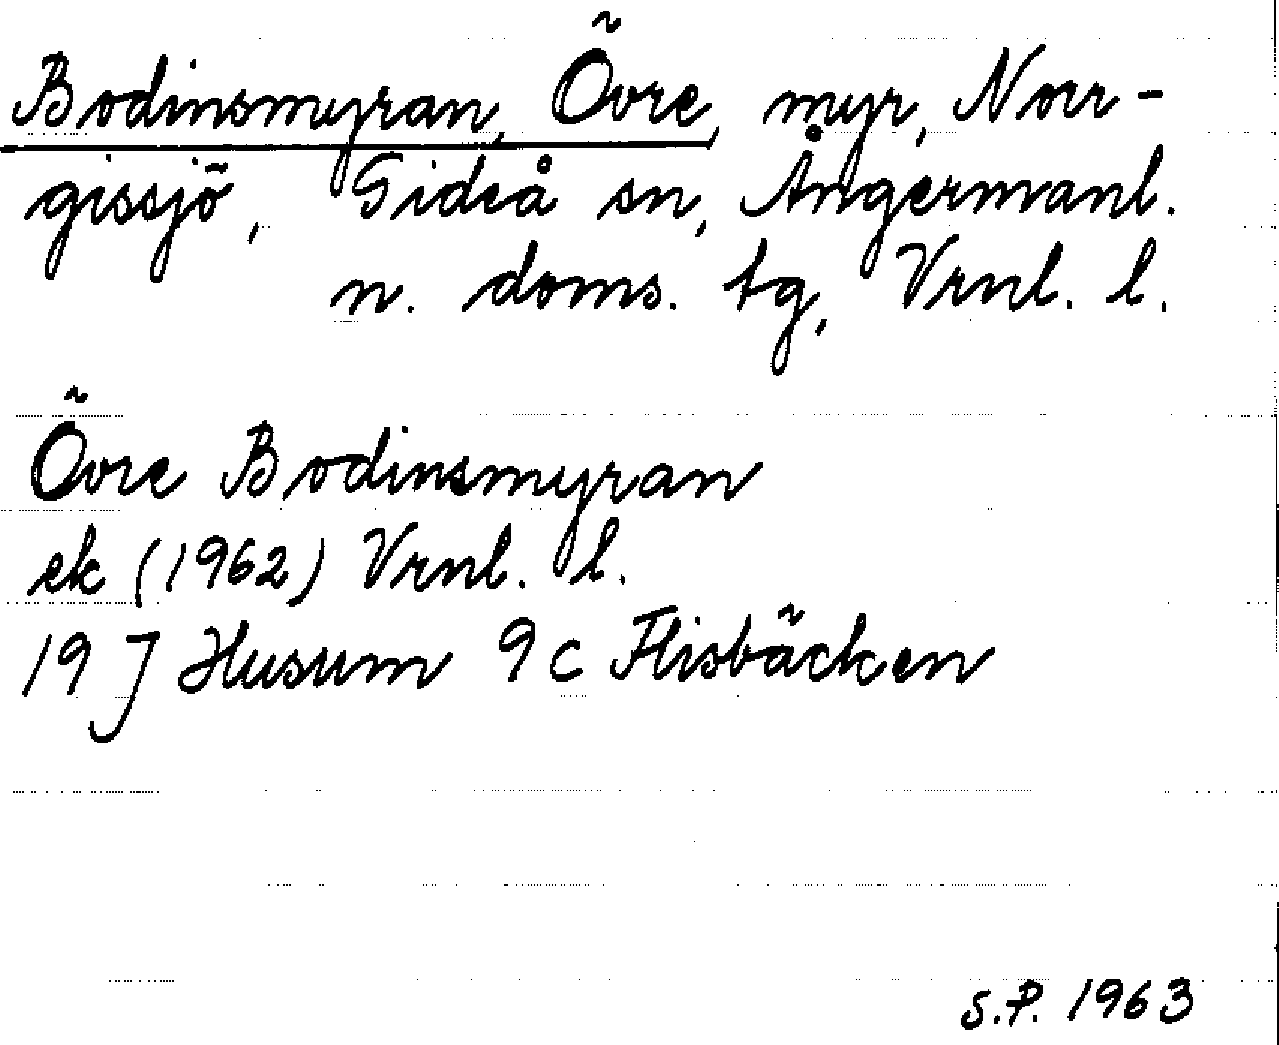 Bodinsmyran, Övre, myr, Norr-
gissjö, Gideå sn, Ångermanl.
n. doms. tg, Vrnl. l.
Övre Bodinsmyran
ek (1962) Vrnl. l.
19 J Husum 9c Flisbäcken
S.P. 1963